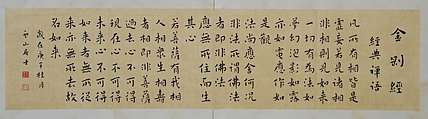 金剛經
經典禪語
凡所有相皆是
虛妄若見諸相
非相即見如來
一切有為法如
夢幻泡影如露
亦如電應作如
是觀
法尚應舍何況
非法 佛法
應無所住而生
其心
若菩薩有我相
人相眾生相壽
者相即非菩薩
過去心不可得
現在心不可得
未來心不可得
如來者無所從
來亦無所去故
名如來
歲在庚子桂月
山居士